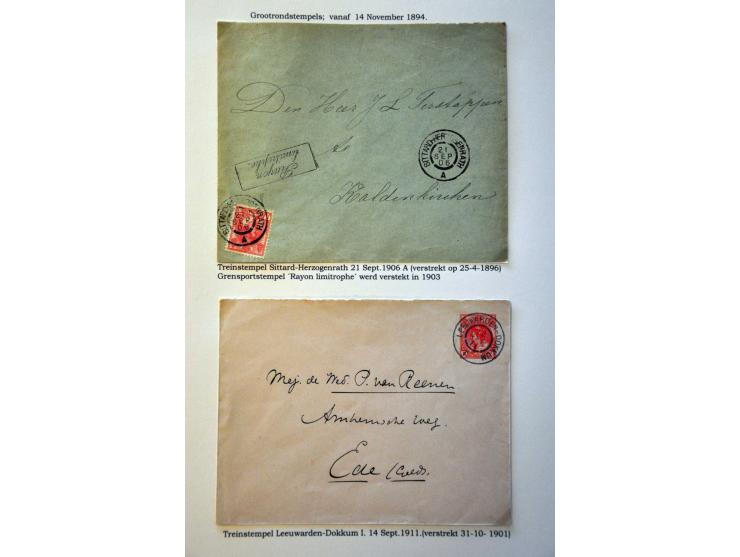 Grootrondstempels; vanaf 14 November 1894.
Den Heer J L Terstappen
te
Kaldenkirchen
Rayon
limitrophe.
SITTARD-HERZOGENRATH
21
SEP
06
A
Treinstempel Sittard-Herzogenrath 21 Sept.1906 A (verstrekt op 25-4-1896)
Grensportstempel ´Rayon limitrophe´ werd verstekt in 1903
LEEUWARDEN-DOKKUM
Mej. de Wed. P. van Reenen
Arnhemsche weg.
Ede (Geld).
Treinstempel Leeuwarden-Dokkum I. 14 Sept.1911.(verstrekt 31-10- 1901)